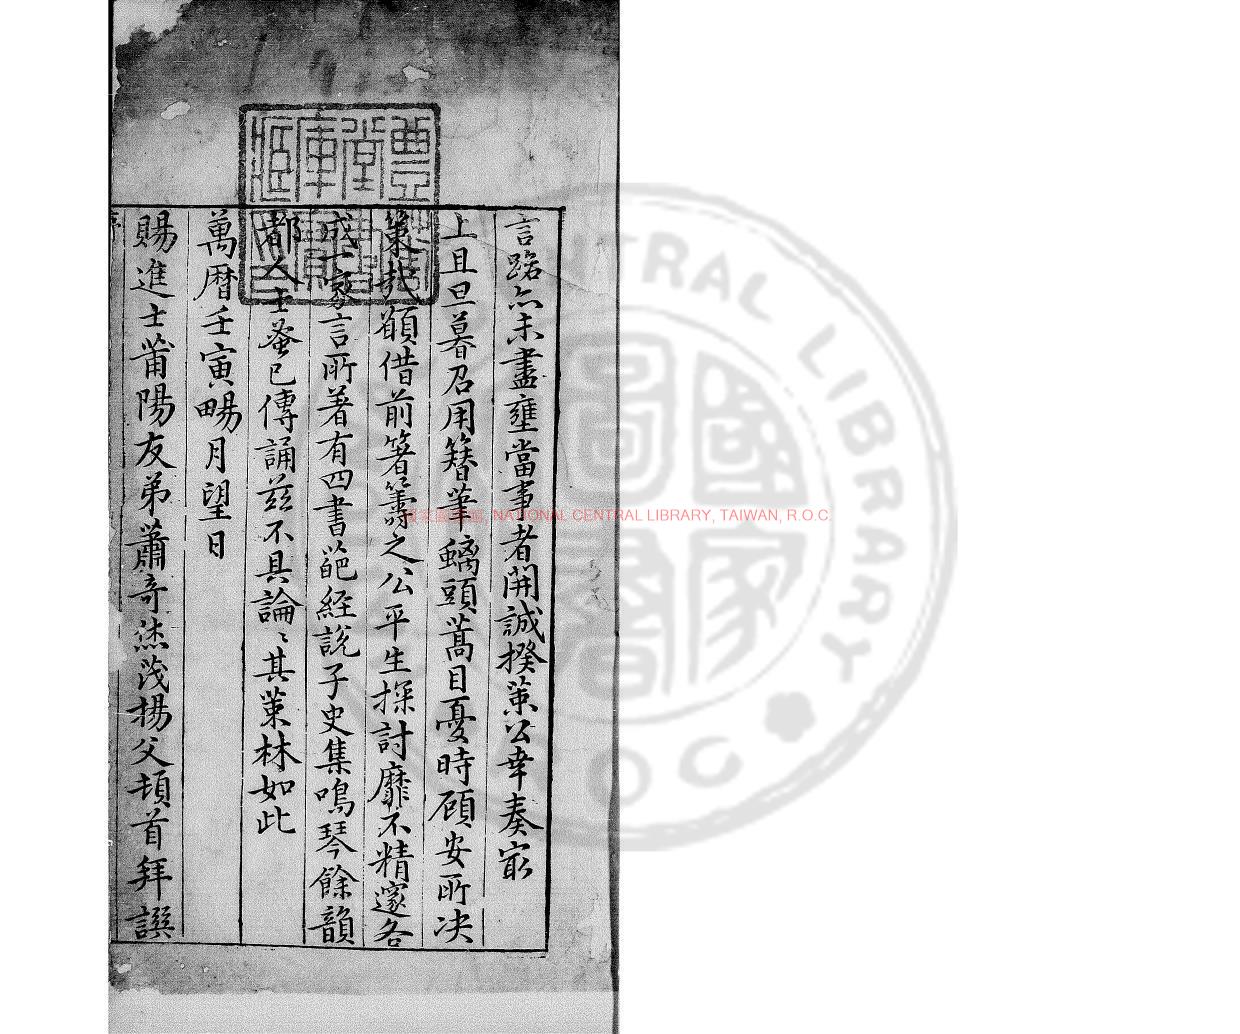 言踣亦未盡壅當事者開誠揆策公幸奏㝡
上且旦暮召用簮華螭頭蒿目憂時顧安所决
策哉願借前箸籌之公平生探討靡不精邃各
成一家言所著有四書葩經說子史集鳴琴餘韻
都人士蚤已傳誦茲不具論〻其策林如此
萬曆壬寅暢月望日
賜進士莆陽友弟蕭奇烋茂揚父頓首拜譔
NATIONAL CENTRAL LIBRARY, TAIWAN, R.O.C.